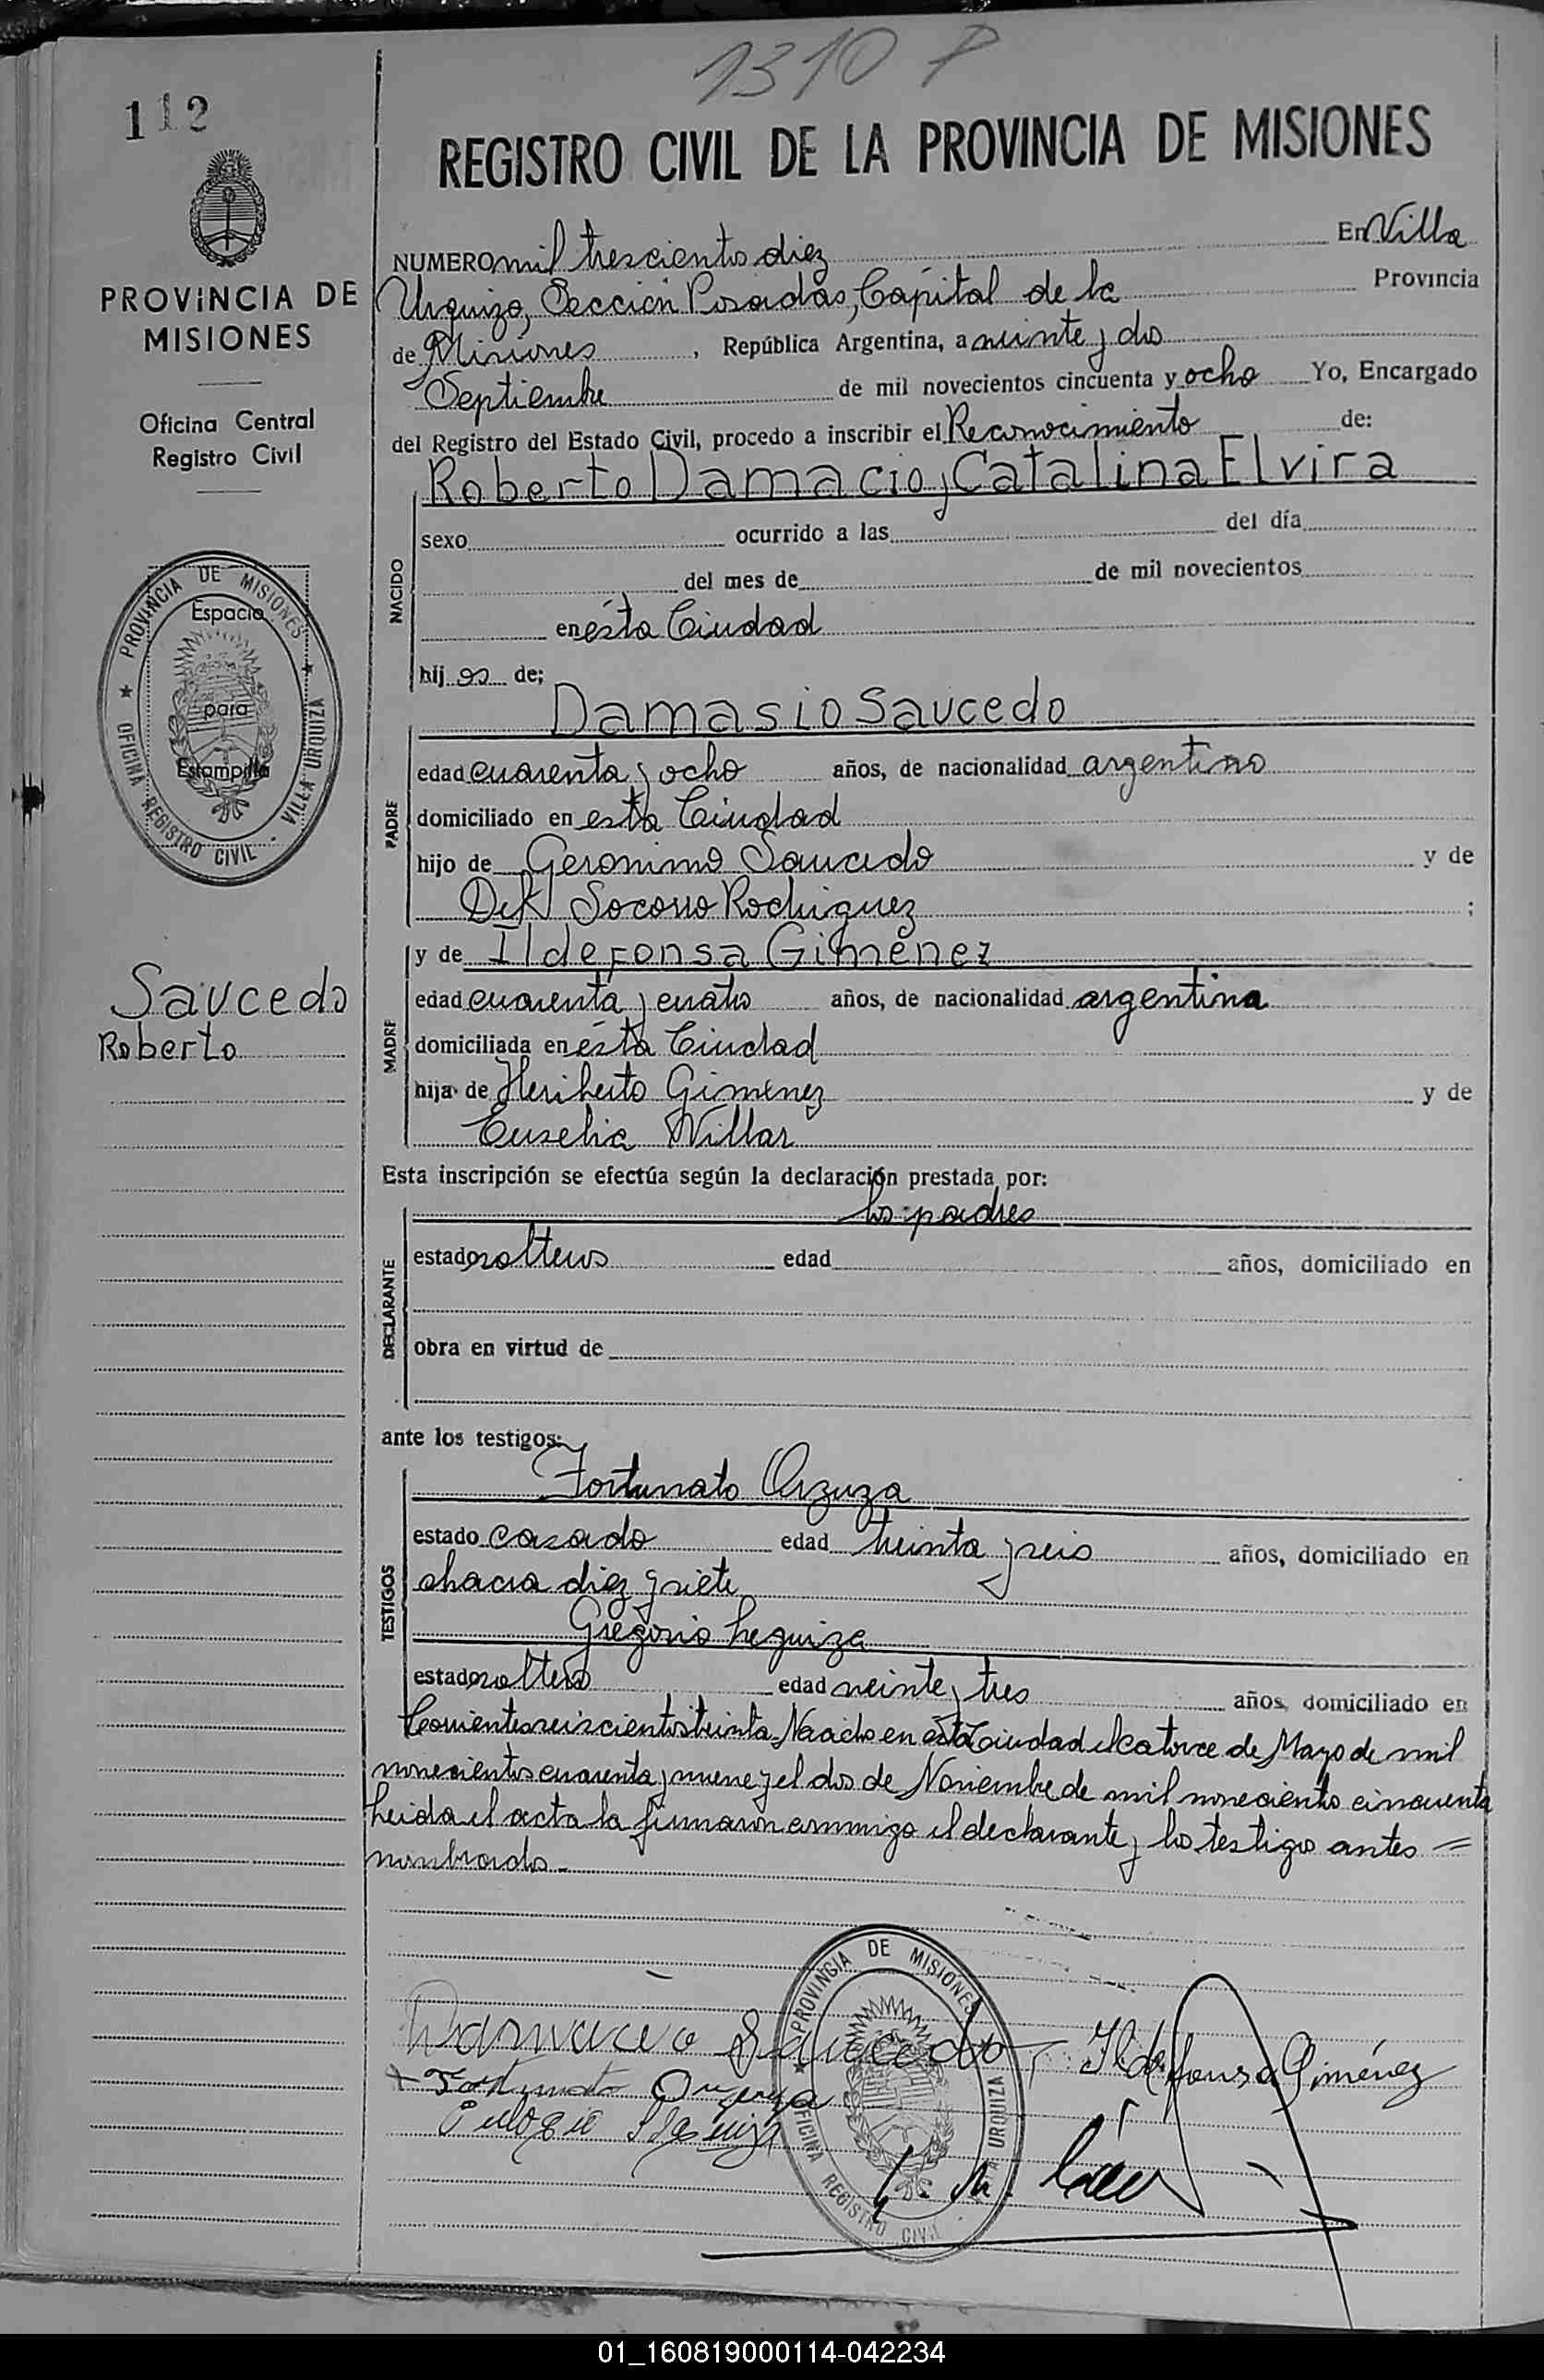 1310 P
112
REGISTRO CIVIL DE LA PROVINCIA DE MISIONES
PROVINCIA DE
MISIONES
Oficina Central
Registro Civil
PROVINCIA DE MISIONES
OFICINA REGISTRO CIVIL - VILLA URQUIZA
Espacio
para
Estampilla
Saucedo
Roberto
NUMERO mil trescientos diez En Villa
Urquiza, Sección Posadas, Capital de la Provincia
de Misiones, República Argentina, a veinte y dos
Septiembre de mil novecientos cincuenta y ocho Yo, Encargado
del Registro del Estado Civil, procedo a inscribir el Reconocimiento de:
Roberto Damacio, Catalina Elvira
NACIDO
sexo ocurrido a las del día
del mes de de mil novecientos
en ésta Ciudad
hij os de;
Damasio Saucedo
PADRE
edad cuarenta y ocho años, de nacionalidad argentino
domiciliado en esta Ciudad
hijo de Geronimo Saucedo y de
Del Socorro Rodriguez ;
y de Ildefonsa Giménez
MADRE
edad cuarenta y cuatro años, de nacionalidad argentina
domiciliada en ésta Ciudad
hija de Heriberto Gimenez y de
Villar
Esta inscripción se efectúa según la declaración prestada por:
los padres
DECLARANTE
estado solteros edad años, domiciliado en
obra en virtud de
ante los testigos:
Fortunato Orzuza
TESTIGOS
estado casado edad treinta y seis años, domiciliado en
chacra diez y siete
Gregorio Leguiza
estado soltero edad veinte y tres años, domiciliado en
Corrientes seiscientos treinta Nacido en esta Ciudad el catorce de Mayo de mil
novecientos cuarenta y nueve y el dos de Noviembre de mil novecientos cincuenta
Leida el acta la firmaron conmigo el declarante y los testigos antes =
nombrados -
PROVINCIA DE MISIONES
OFICINA REGISTRO CIVIL - URQUIZA
Damacio Saucedo - Ildefonsa Giménez
+ Fortunato Orzuza
01_160819000114-042234